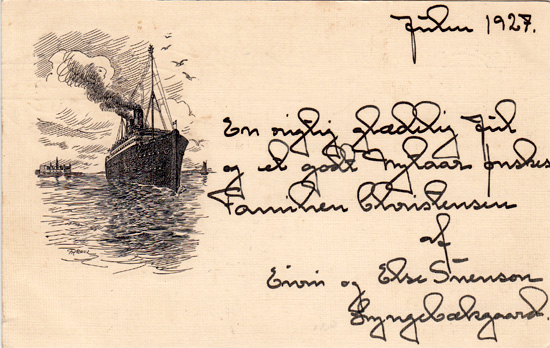 Julen 1927.
En rigtig glædelig Jul
og et godt Nytaar ønskes
Familien Christensen
af
Eivin og Else Svenson
Lyngebæksgaard.